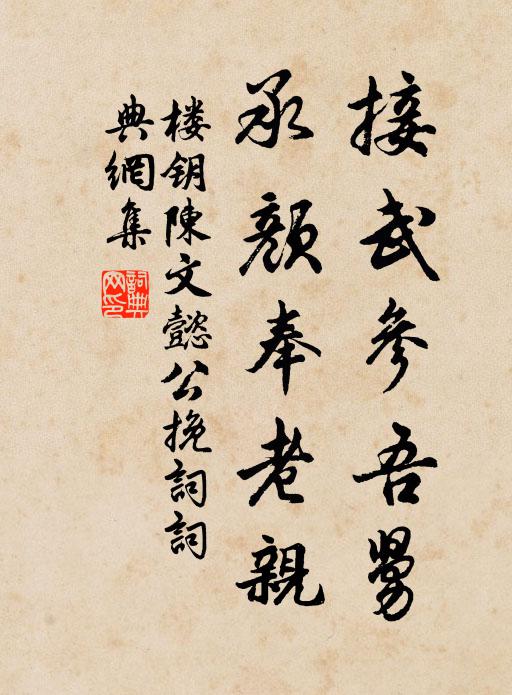 接武参吾舅
承顏奉老親
楼钥陳文懿公挽詞詞
典網集
詞典网印